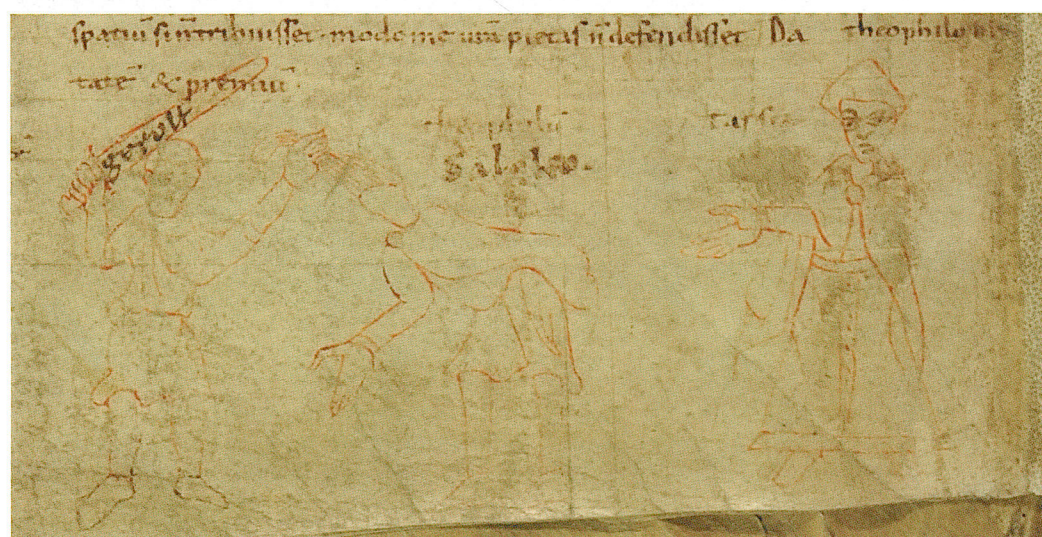 spatiū si ñ tribuisset · modo me urā pietas ñ defendisset · Da theophilo
tatē & premiū ·
gerolt
theophilū
tarsia